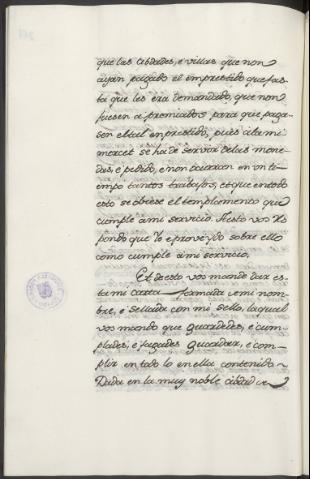 que las cibdades, e villas que non
ayan pagado el emprestido que fas-
ta que les era demandado, que non
fuesen apremiados para que paga-
sen el tal enprestido, pues a la mi
mercet se ha de servir de las mone-
das, e pedido, e non ocurran en un ti-
empo tantos trabajos, e que en todo
esto se obiese el templamento que
cumple a mi servicio. A esto vos Rs
pondo que Yo e proveydo sobre ello
como cumple a mi servicio.
Et de esto vos mande dar es-
ta mi carta firmada e mi nom-
bre, e sellada con mi sello, la qual
vos mando que guardedes, e cum-
plades, e fagades guardar, e com-
plir en todo lo en ella contenido.
Dada en la muy noble cibdad